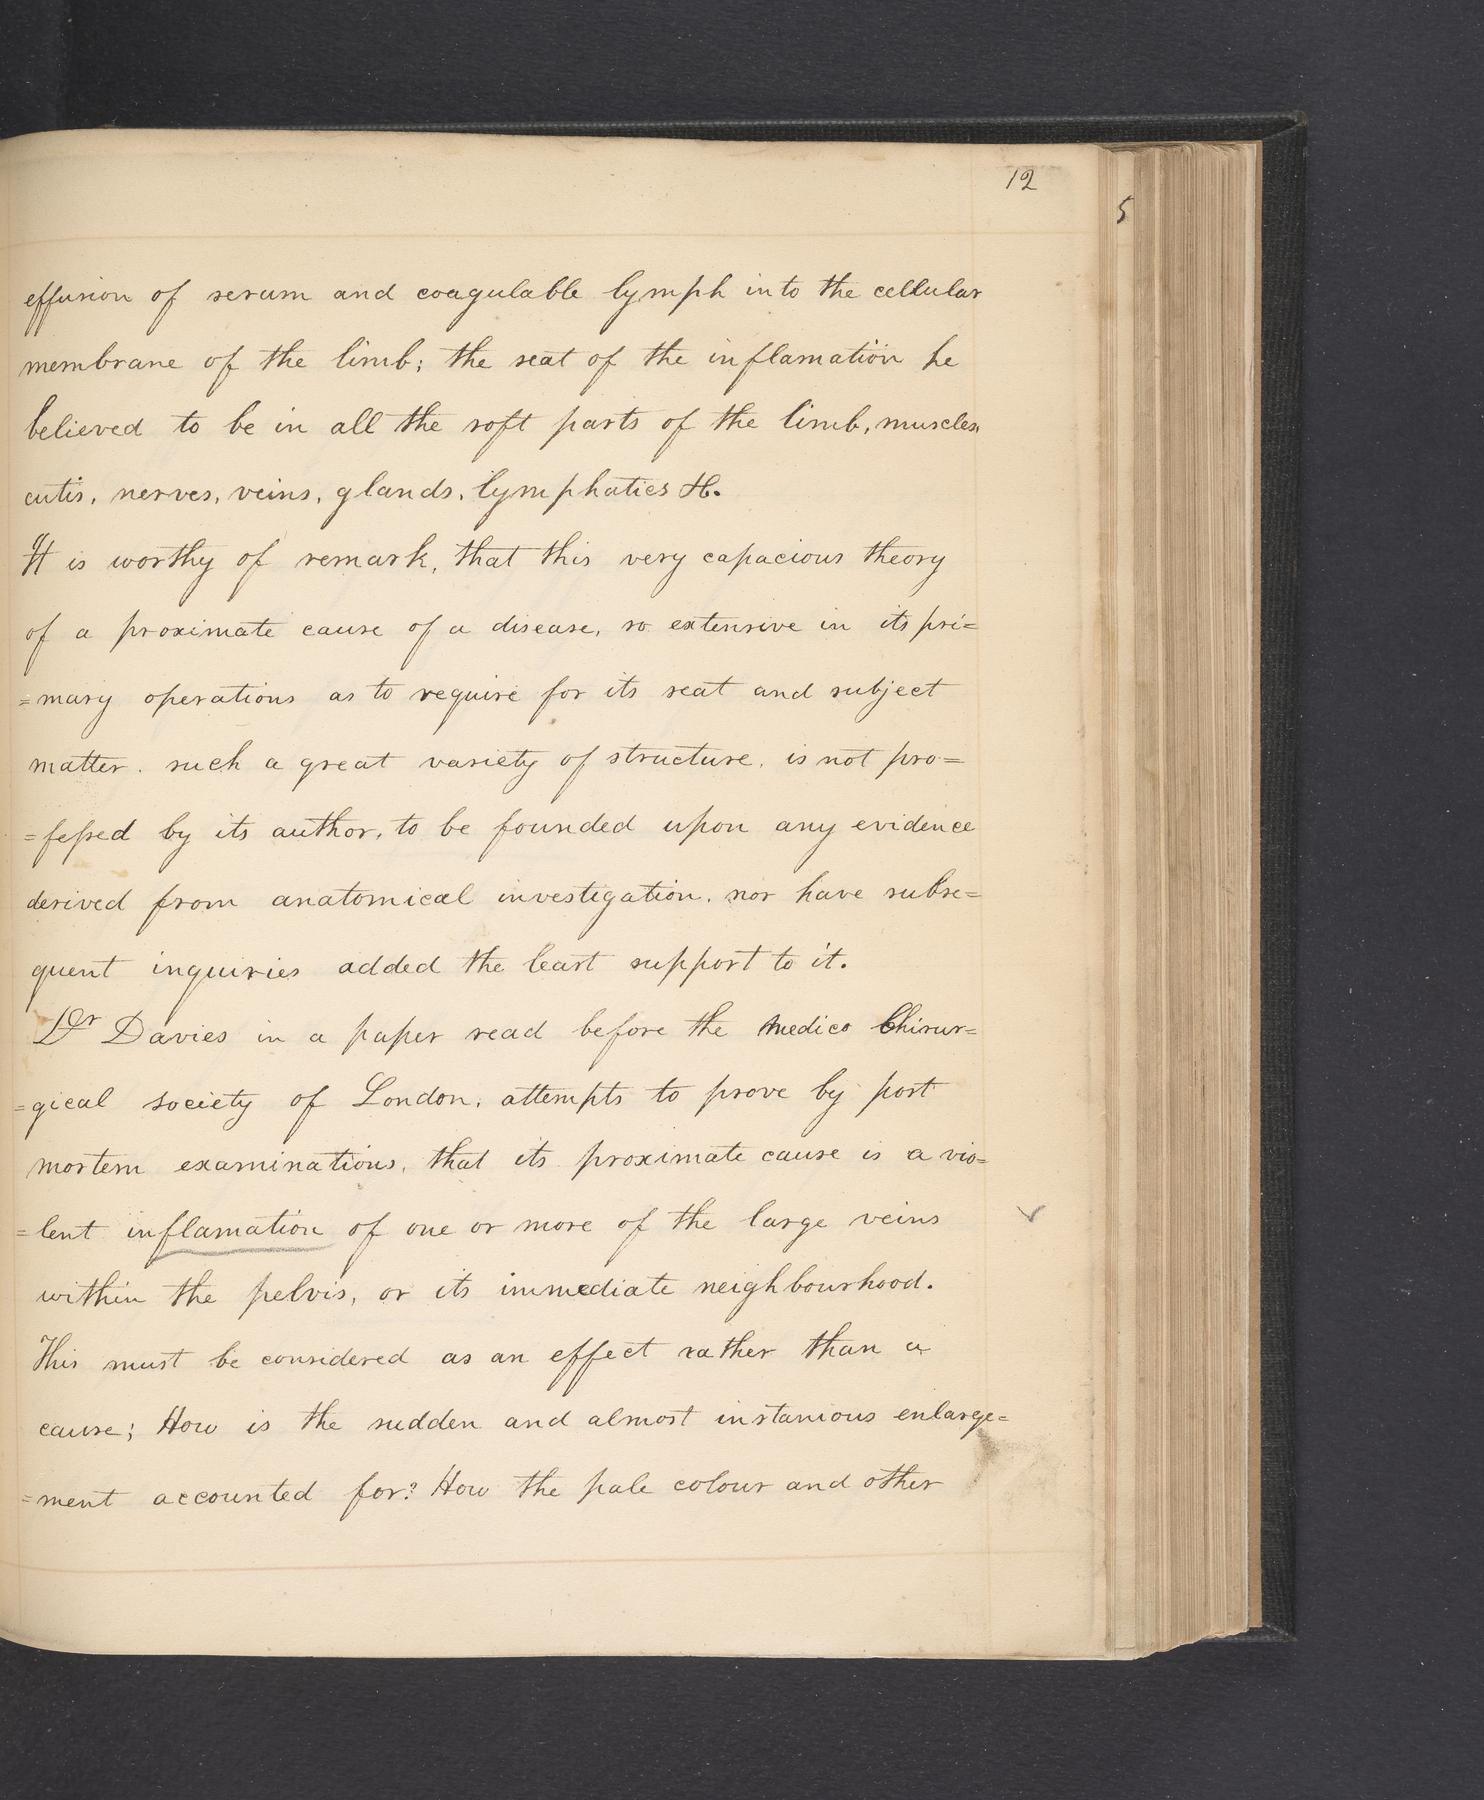 12
5
effusion of serum and coagulable lymph into the cellular
membrane of the limb; the seat of the inflamation he
believed to be in all the soft parts of the limb, muscles,
cutis, nerves, veins, glands, lymphatics &c.
It is worthy of remark, that this very capacious theory
of a proximate cause of a disease, so extensive in its pri=
=mary operations as to require for its seat and subject
matter, such a great variety of structure, is not pro=
=fessed by its author, to be founded upon any evidence
derived from anatomical investigation, nor have subse=
quent inquiries added the least support to it.
Dr Davies in a paper read before the Medico Chirur=
=gical society of London, attempts to prove by post
mortem examinations, that its proximate cause is a vio=
=lent inflamation of one or more of the large veins
within the pelvis, or its immediate neighbourhood.
This must be considered as an effect rather than a
cause; How is the sudden and almost instanious enlarge=
=ment accounted for? How the pale colour and other